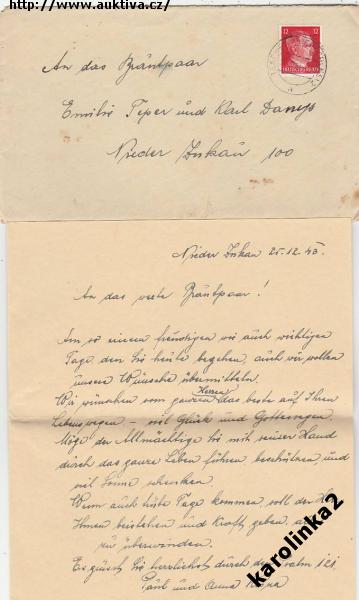 http://www.auktiva.cz/
12
12
An das Bräutpaar
Emilie Teper und Karl Danys
Nieder 100
Nieder 25.12.43.
An das werte Bräutpaar!
An so einem freudigen wie auch wichtigen
Tage, den Sie heute begehen, auch wir wollen
unsere Wünsche übermitteln.
Wir wünschen vom ganzen Herzen das beste auf Ihren
Lebenswegen – viel Glück und Gottes
Möge der Allmächtige Sie mit seiner Hand
durch das ganze Leben führen beschützen, und
viel Sonne schenken.
Wenn auch Tage kommen, soll der
Ihnen beistehen und Kraft geben,
zu überwinden.
Es grüsst Sie herzlichst durch den 121.
Paul und Anna
karolinka2